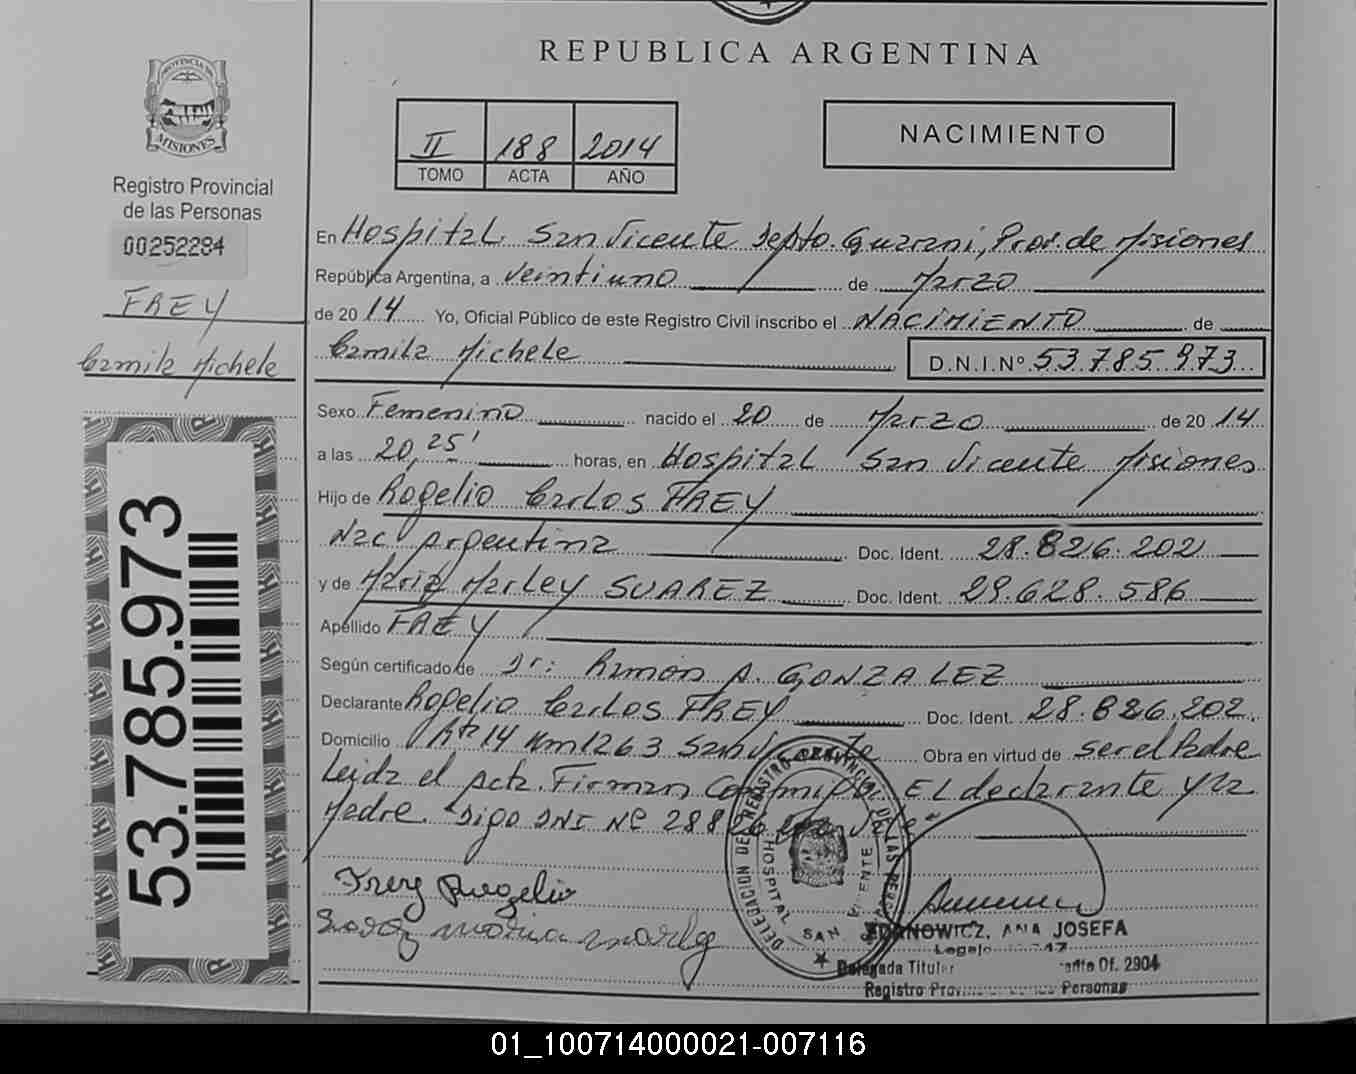 REPUBLICA ARGENTINA
PROVINCIA DE
MISIONES
Registro Provincial
de las Personas
00252284
FREY
Camila Michele
53.785.973
II 188 2014
TOMO ACTA AÑO
NACIMIENTO
En Hospital San Vicente Depto. Guarani, Prov. de Misiones
República Argentina, a veintiuno de Marzo
de 2014 Yo, Oficial Público de este Registro Civil inscribo el NACIMIENTO de
Camila Michele D.N.I.Nº 53.785.973
Sexo Femenino nacido el 20 de Marzo de 2014
a las 20,25' horas, en Hospital San Vicente Misiones
Hijo de Rogelio Carlos FREY
Nac Argentina Doc. Ident. 28.826.202
y de Maria Marley SUAREZ Doc. Ident. 29.628.586
Apellido FREY
Según certificado de Dr: Ramón A. GONZALEZ
Declarante Rogelio Carlos FREY Doc. Ident. 28.826.202
Domicilio Rta 14 Km 1263 San Vicente Obra en virtud de ser el Padre
Leida el Acta. Firman Conmigo El declarante y la
Madre. Digo DNI Nº 28826202 Vale"
Frey Rogelio
Suarez maria marley
DELEGACION DEL REGISTRO PROVINCIAL DE LAS PERSONAS
HOSPITAL SAN VICENTE
ZDANOWICZ, ANA JOSEFA
Legajo
Delegada Titular Of. 2904
Registro Provincial de las Personas
01_100714000021-007116